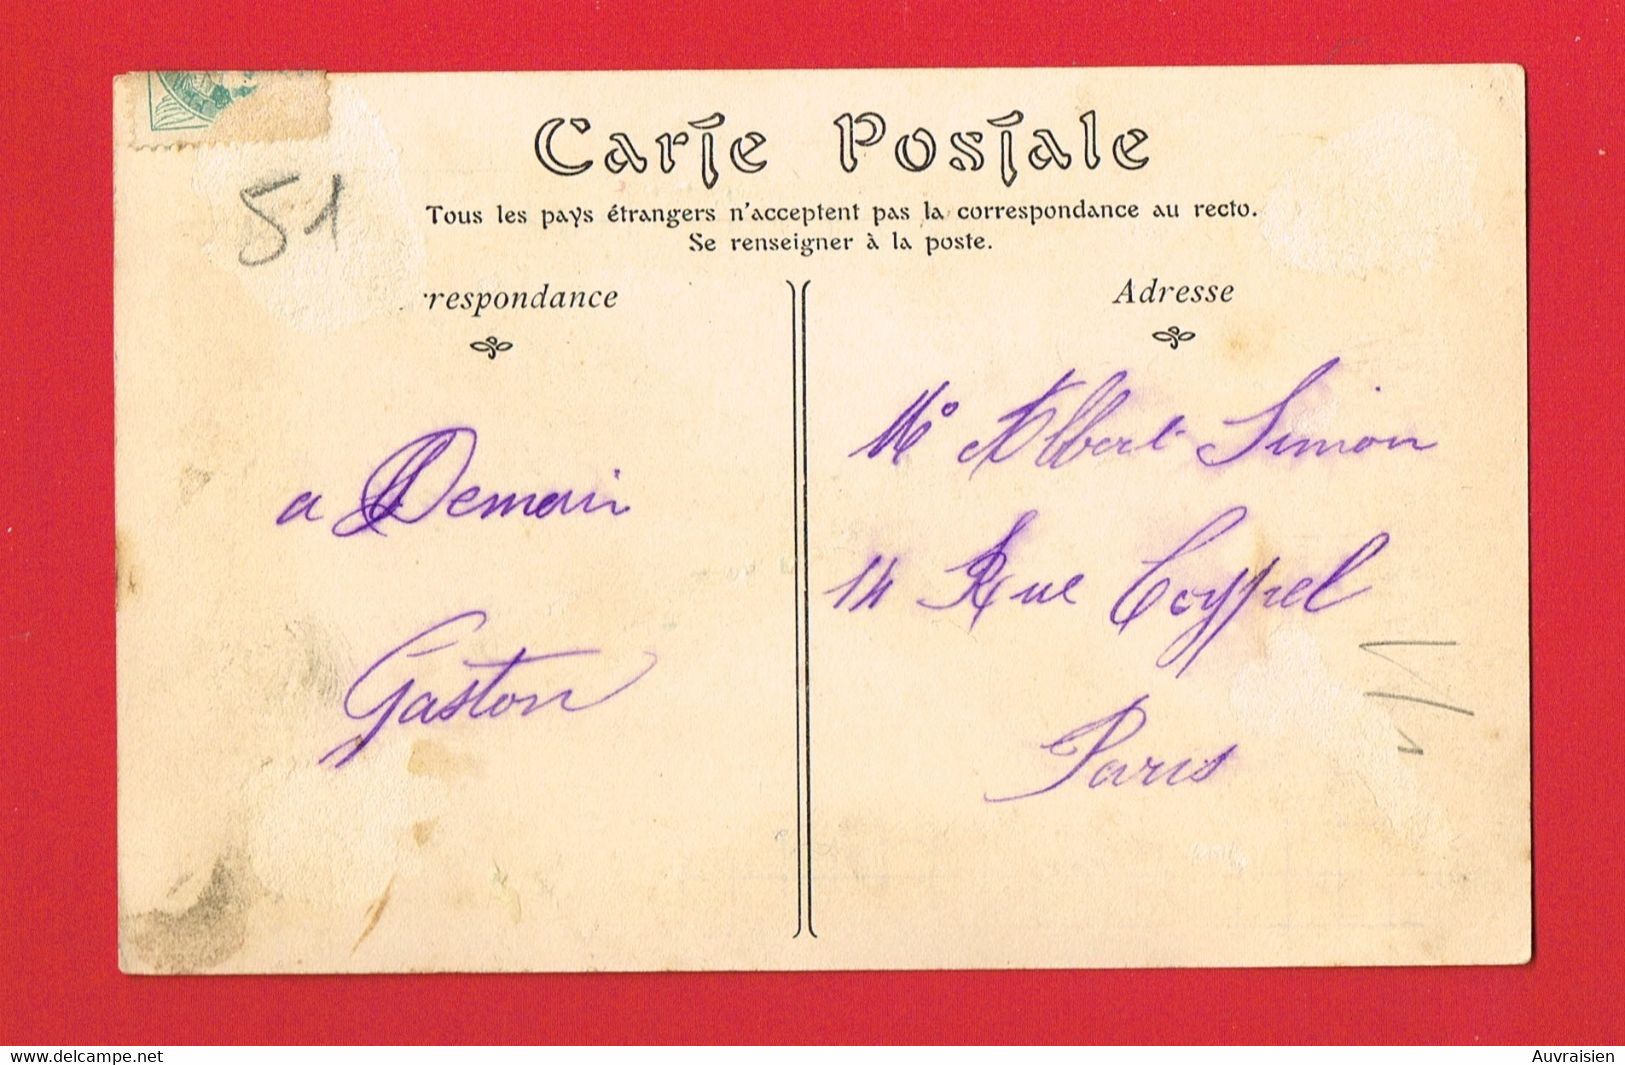 Carte Postale
Tous les pays étrangers n'acceptent pas la correspondance au recto.
Se renseigner à la poste.
51
respondance
Adresse
a Demain
Gaston
Mr Albert Simon
14 Rue Coypel
Paris
www.delcampe.net
Auvraisien